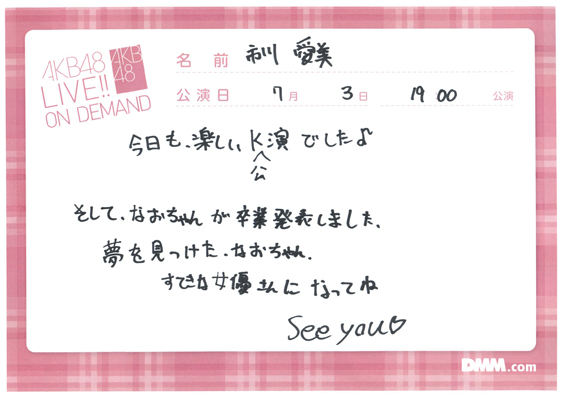 AKB48
LIVE!!
ON DEMAND
AKB
48
名 前 市川 愛美
公演日 7月 3日 19 00 公演
今日も、楽しいK公演でした♪
そして、なおちゃんが卒業発表しました、
夢を見つけた、なおちゃん、
すてきな女優さんになってね
See you♡
DMM.com